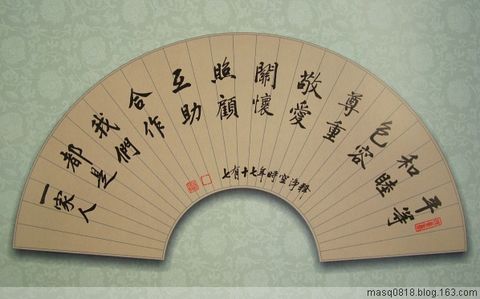 平等
和睦
包容
尊重
敬愛
關懷
照顧
互助
合作
我們
都是
一家人
釋淨空時年七十有七
masq0818.blog.163.com